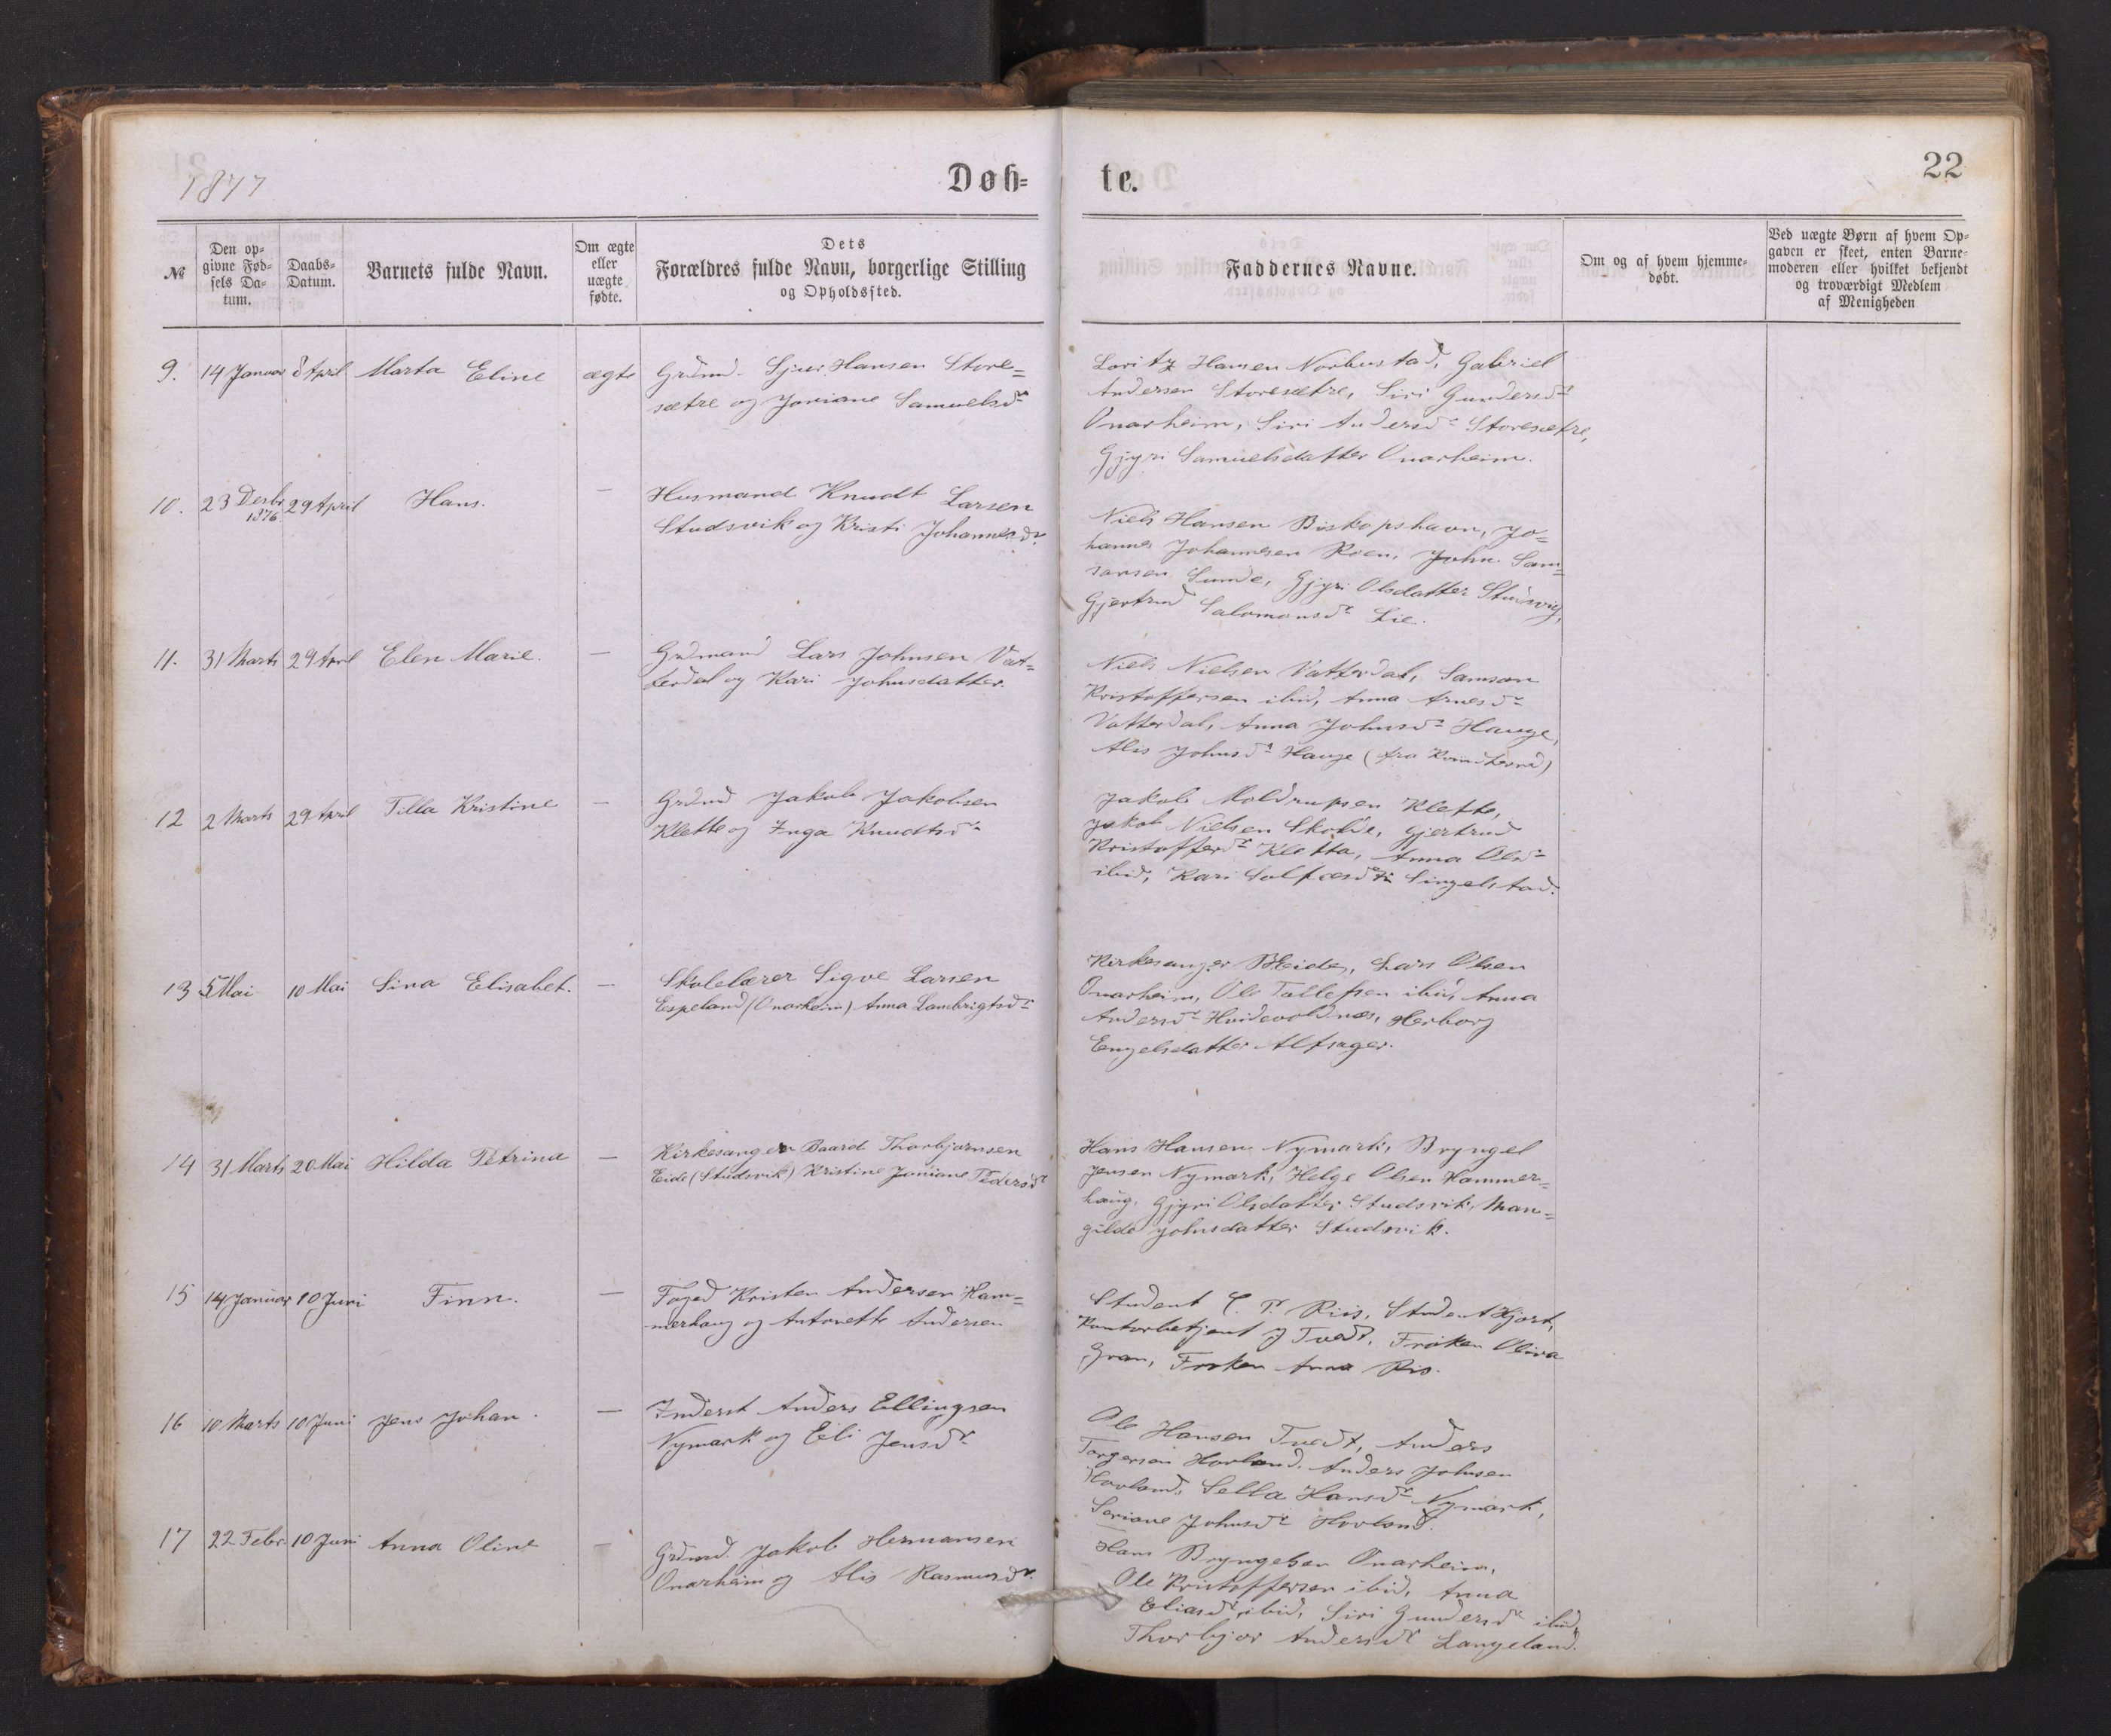 1877
Døb=
te.
22
No
Den op=
givne Fød=
sels Da=
tum.
Daabs=
Datum.
Barnets fulde Navn.
Om ægte
eller
uægte
fødte.
Dets
Forældres fulde Navn, borgerlige Stilling
og Opholdssted.
Faddernes Navne.
Om og af hvem hjemme=
døbt.
Ved uægte Børn af hvem Op=
gaven er skeet, enten Barne=
moderen eller hvilket bekjendt
og troværdigt Medlem
af Menigheden
9. 14 Januar 8 April Marta Eline ægte Grdmd. Sjur Hansen Store=
sætre og Joniane Samuelsdr
Loritz Hansen Norhustad, Gabriel
Andersen Storesætre, Siri Gundersdr
Onarheim, Siri Andersdr Storesætre,
Gjyri Samuelsdatter Onarheim.
10. 23 Desbr 1876 29 April Hans. — Husmand Knudt Larsen
Studsvik og Kristi Johannesdr.
Niels Hansen Biskopshavn, Jo=
hannes Johannesen Roen, John Sam=
sonsen Sunde, Gjyri Olsdatter Studsvig,
Gjertrud Salomonsdr Lie.
11. 31 Marts 29 April Elen Marie. — Grdmand Lars Johnsen Vat=
terdal og Kari Johnsdatter.
Niels Nielsen Vatterdal, Samson
Kristoffersen ibid, Anna Arnesdr
Vatterdal, Anna Johnsdr Hauge,
Alis Johnsdr Hauge (fra Kvindherred)
12 2 Marts 29 April Tilla Kristine — Grdmd Jakob Jakobsen
Klette og Inga Knudtsdr
Jakob Moldrupsen Klette,
Jakob Nielsen Skolde, Gjertrud
Kristoffersdr Kletta, Anna Olsdr
ibid, Kari Singelstad.
13 5 Mai 10 Mai Sina Elisabet. — Skolelærer Sigve Larsen
Espeland (Onarheim) Anna Lambrigtsdr
Kirkesanger B Eide, Lars Olsen
Onarheim, Ole Tollefsen ibid, Anna
Andersdr Hvidevoldnæs, Herborg
Engelsdatter Alfsager.
14 31 Marts 20 Mai Hilda Petrina — Kirkesanger Baard Thorbjørnsen
Eide (Studsvik) Kristine Joniane Pedersdr
Hans Hansen Nymark, Bryngel
Jensen Nymark, Helge Olsen Hammer=
haug, Gjyri Olsdatter Studsvik, Man=
gilde Johnsdatter Studsvik.
15 14 Januar 10 Juni Finn. — Foged Kristen Andersen Ham=
merhaug og Antonette Andersen
Student C. P. Riis, Student Hjort,
Kontorbetjent J Tvedt, Frøken Oliva
Gran, Frøken Anna Ris.
16 10 Marts 10 Juni Jens Johan. — Inderst Anders Ellingsen
Nymark og Eli Jensdr
Ole Hansen Tvedt, Anders
Torgersen Hovland, Anders Johnsen
Hovland, Sella Hansdr Nymark,
Seriane Johnsdr Hovland.
17 22 Febr. 10 Juni Anna Oline — Grdmd. Jakob Hermansen
Onarheim og Alis Rasmusdr.
Hans Bryngelsen Onarheim,
Ole Kristoffersen ibid, Anna
Eliasdr ibid, Siri Gundersdr ibid,
Thorbjør Andersdr Langeland.